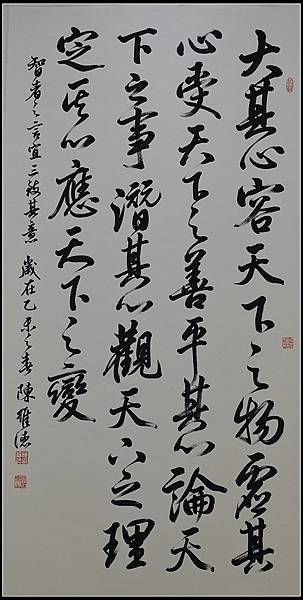 大其心容天下之物虛其
心受天下之善平其心論天
下之事潛其心觀天下之理
定其心應天下之變
智者之言宜三複其意 歲在乙未之春 陳維德